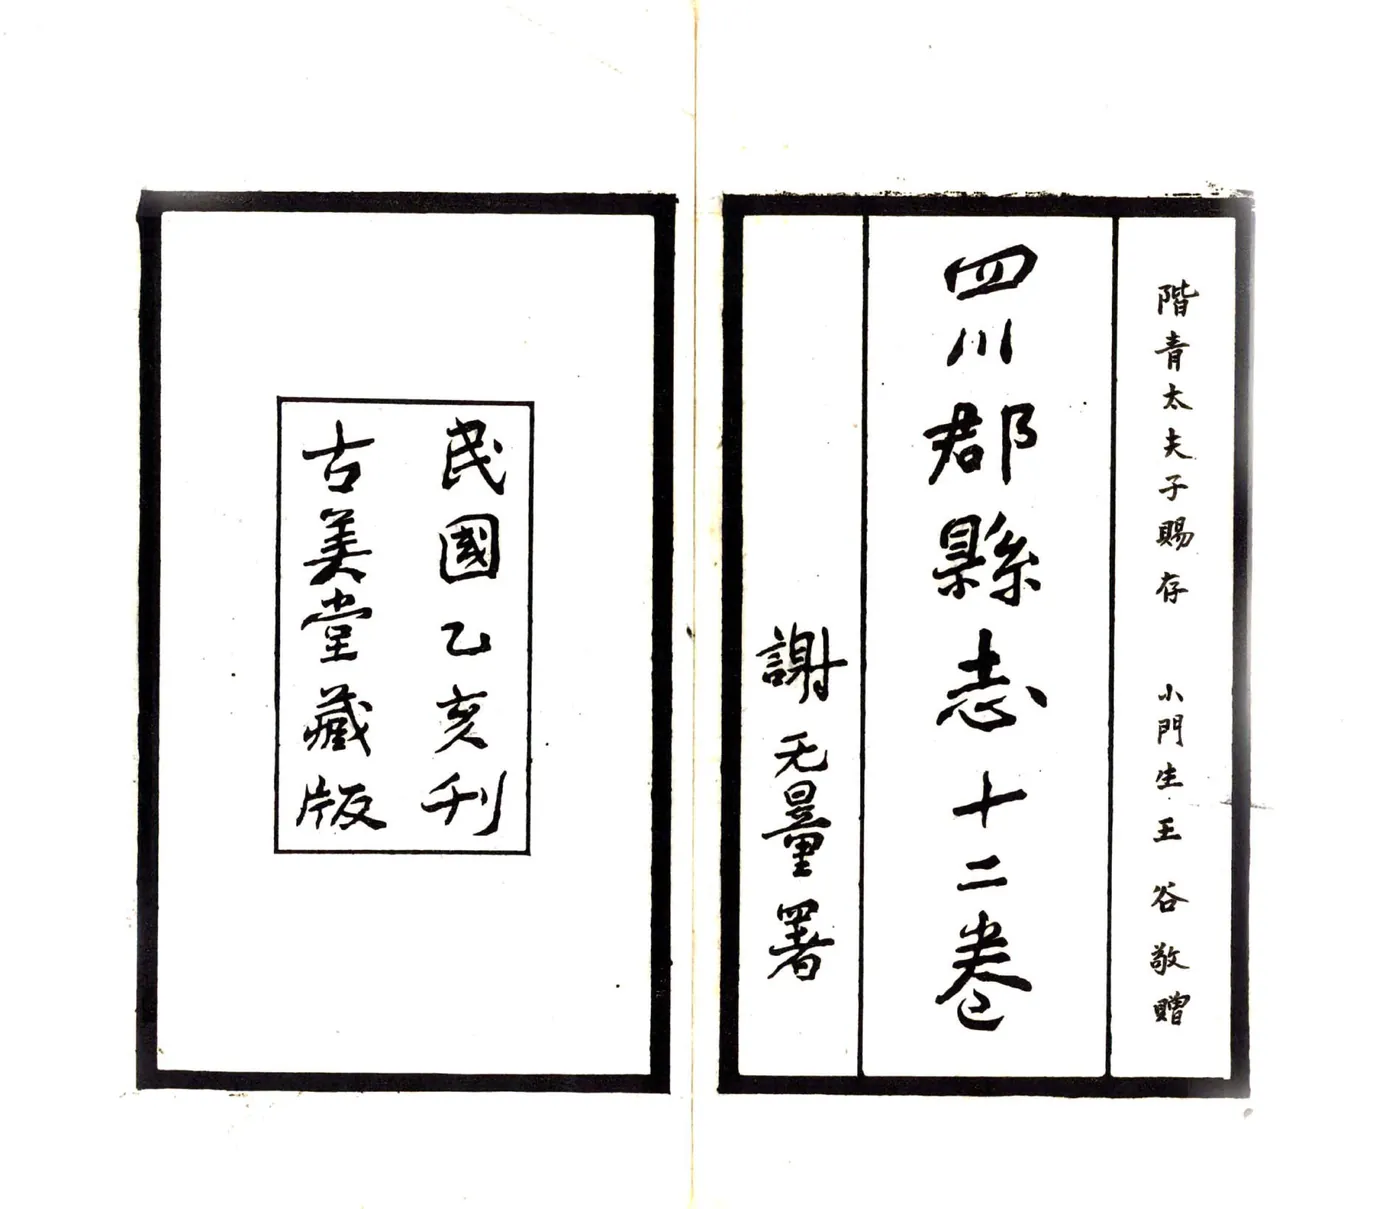 階青太夫子賜存 小門生王谷敬贈
四川郡縣志十二卷
謝无量署
民國乙亥刊
古美堂藏版